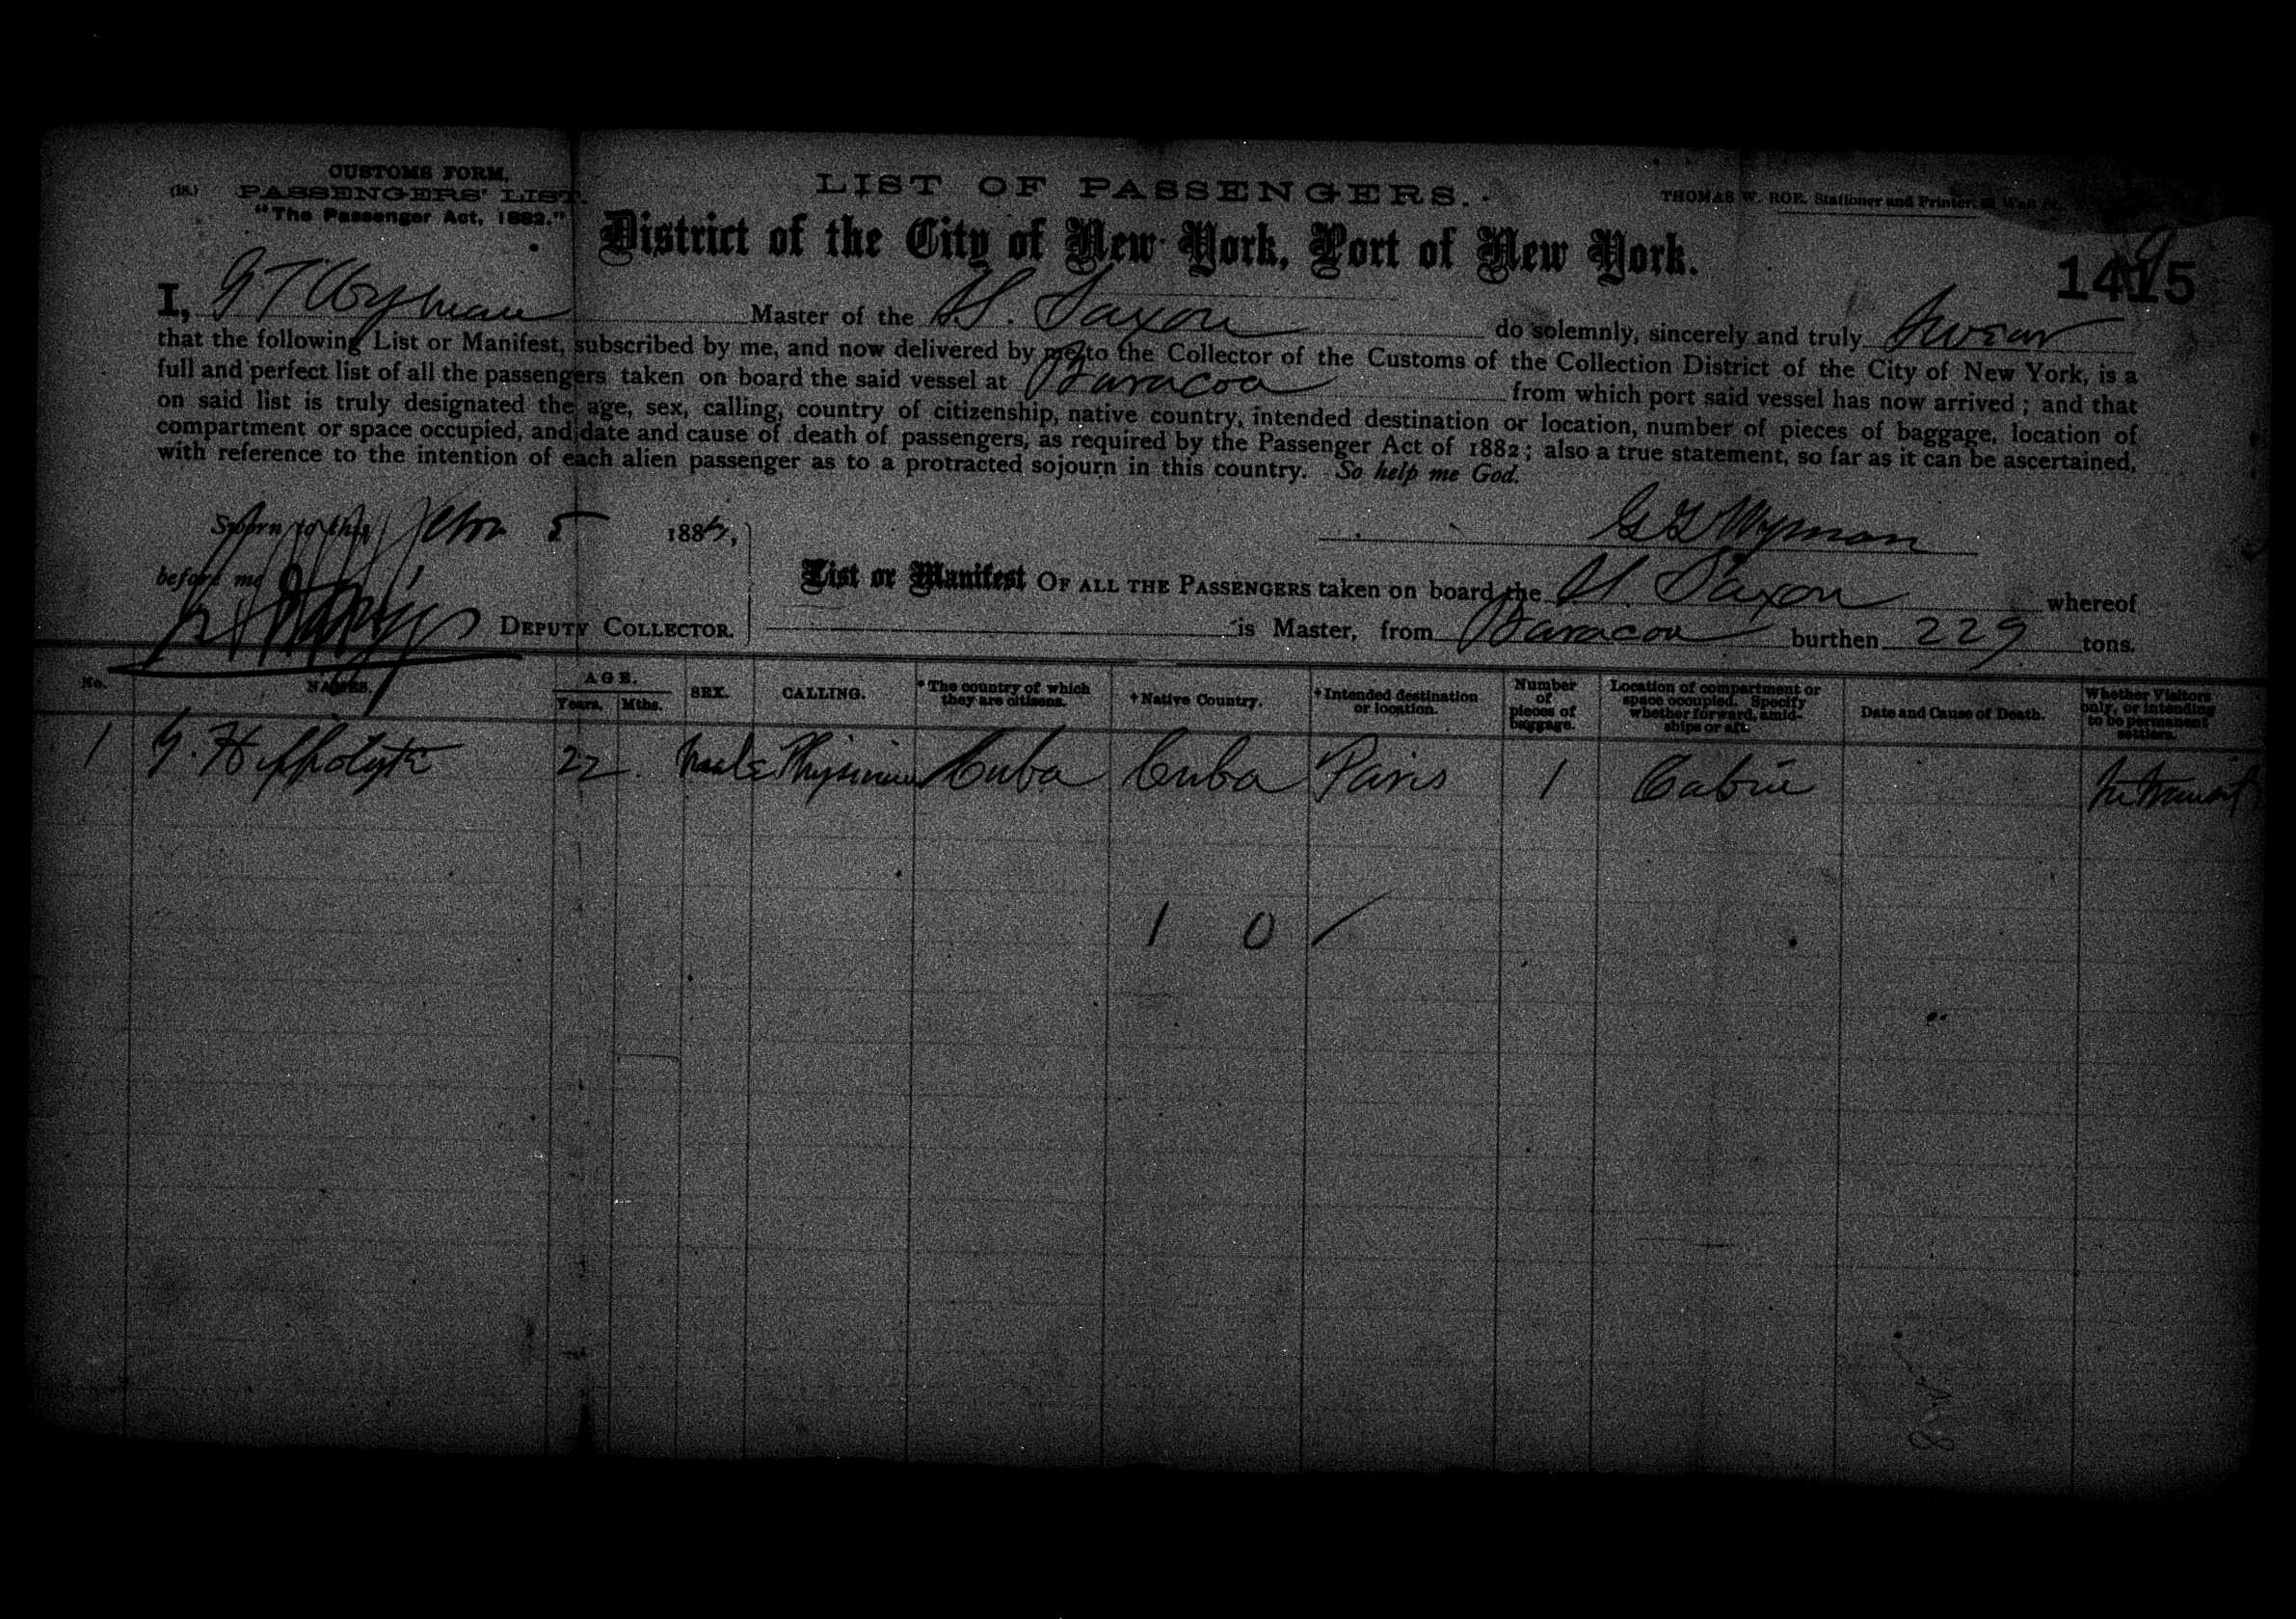 CUSTOMS FORM,
(18.) PASSENGERS' LIST.
"The Passenger Act, 1882."
LIST OF PASSENGERS.
THOMAS W. ROE, Stationer and Printer, Wall St.
District of the City of New York, Port of New York.
1495
I, G T Wyman Master of the H. Saxon do solemnly, sincerely and truly swear
that the following List or Manifest, subscribed by me, and now delivered by me to the Collector of the Customs of the Collection District of the City of New York, is a
full and perfect list of all the passengers taken on board the said vessel at Baracoa from which port said vessel has now arrived; and that
on said list is truly designated the age, sex, calling, country of citizenship, native country, intended destination or location, number of pieces of baggage, location of
compartment or space occupied, and date and cause of death of passengers, as required by the Passenger Act of 1882; also a true statement, so far as it can be ascertained,
with reference to the intention of each alien passenger as to a protracted sojourn in this country. So help me God.
Sworn to this 5 188
G T Wyman
before me
DEPUTY COLLECTOR.
List or Manifest OF ALL THE PASSENGERS taken on board the H. Saxon whereof
is Master, from Baracoa burthen 229 tons.
No. NAMES. AGE. Years. Mths. SEX. CALLING. *The country of which they are citizens. †Native Country. †Intended destination or location. Number of pieces of baggage. Location of compartment or space occupied. Specify whether forward, amidships or aft. Date and Cause of Death. Whether Visitors only, or intending to be permanent settlers.
1 G. Hippolyte 22 Male Physician Cuba Cuba Paris 1 Cabin In transit
1 0